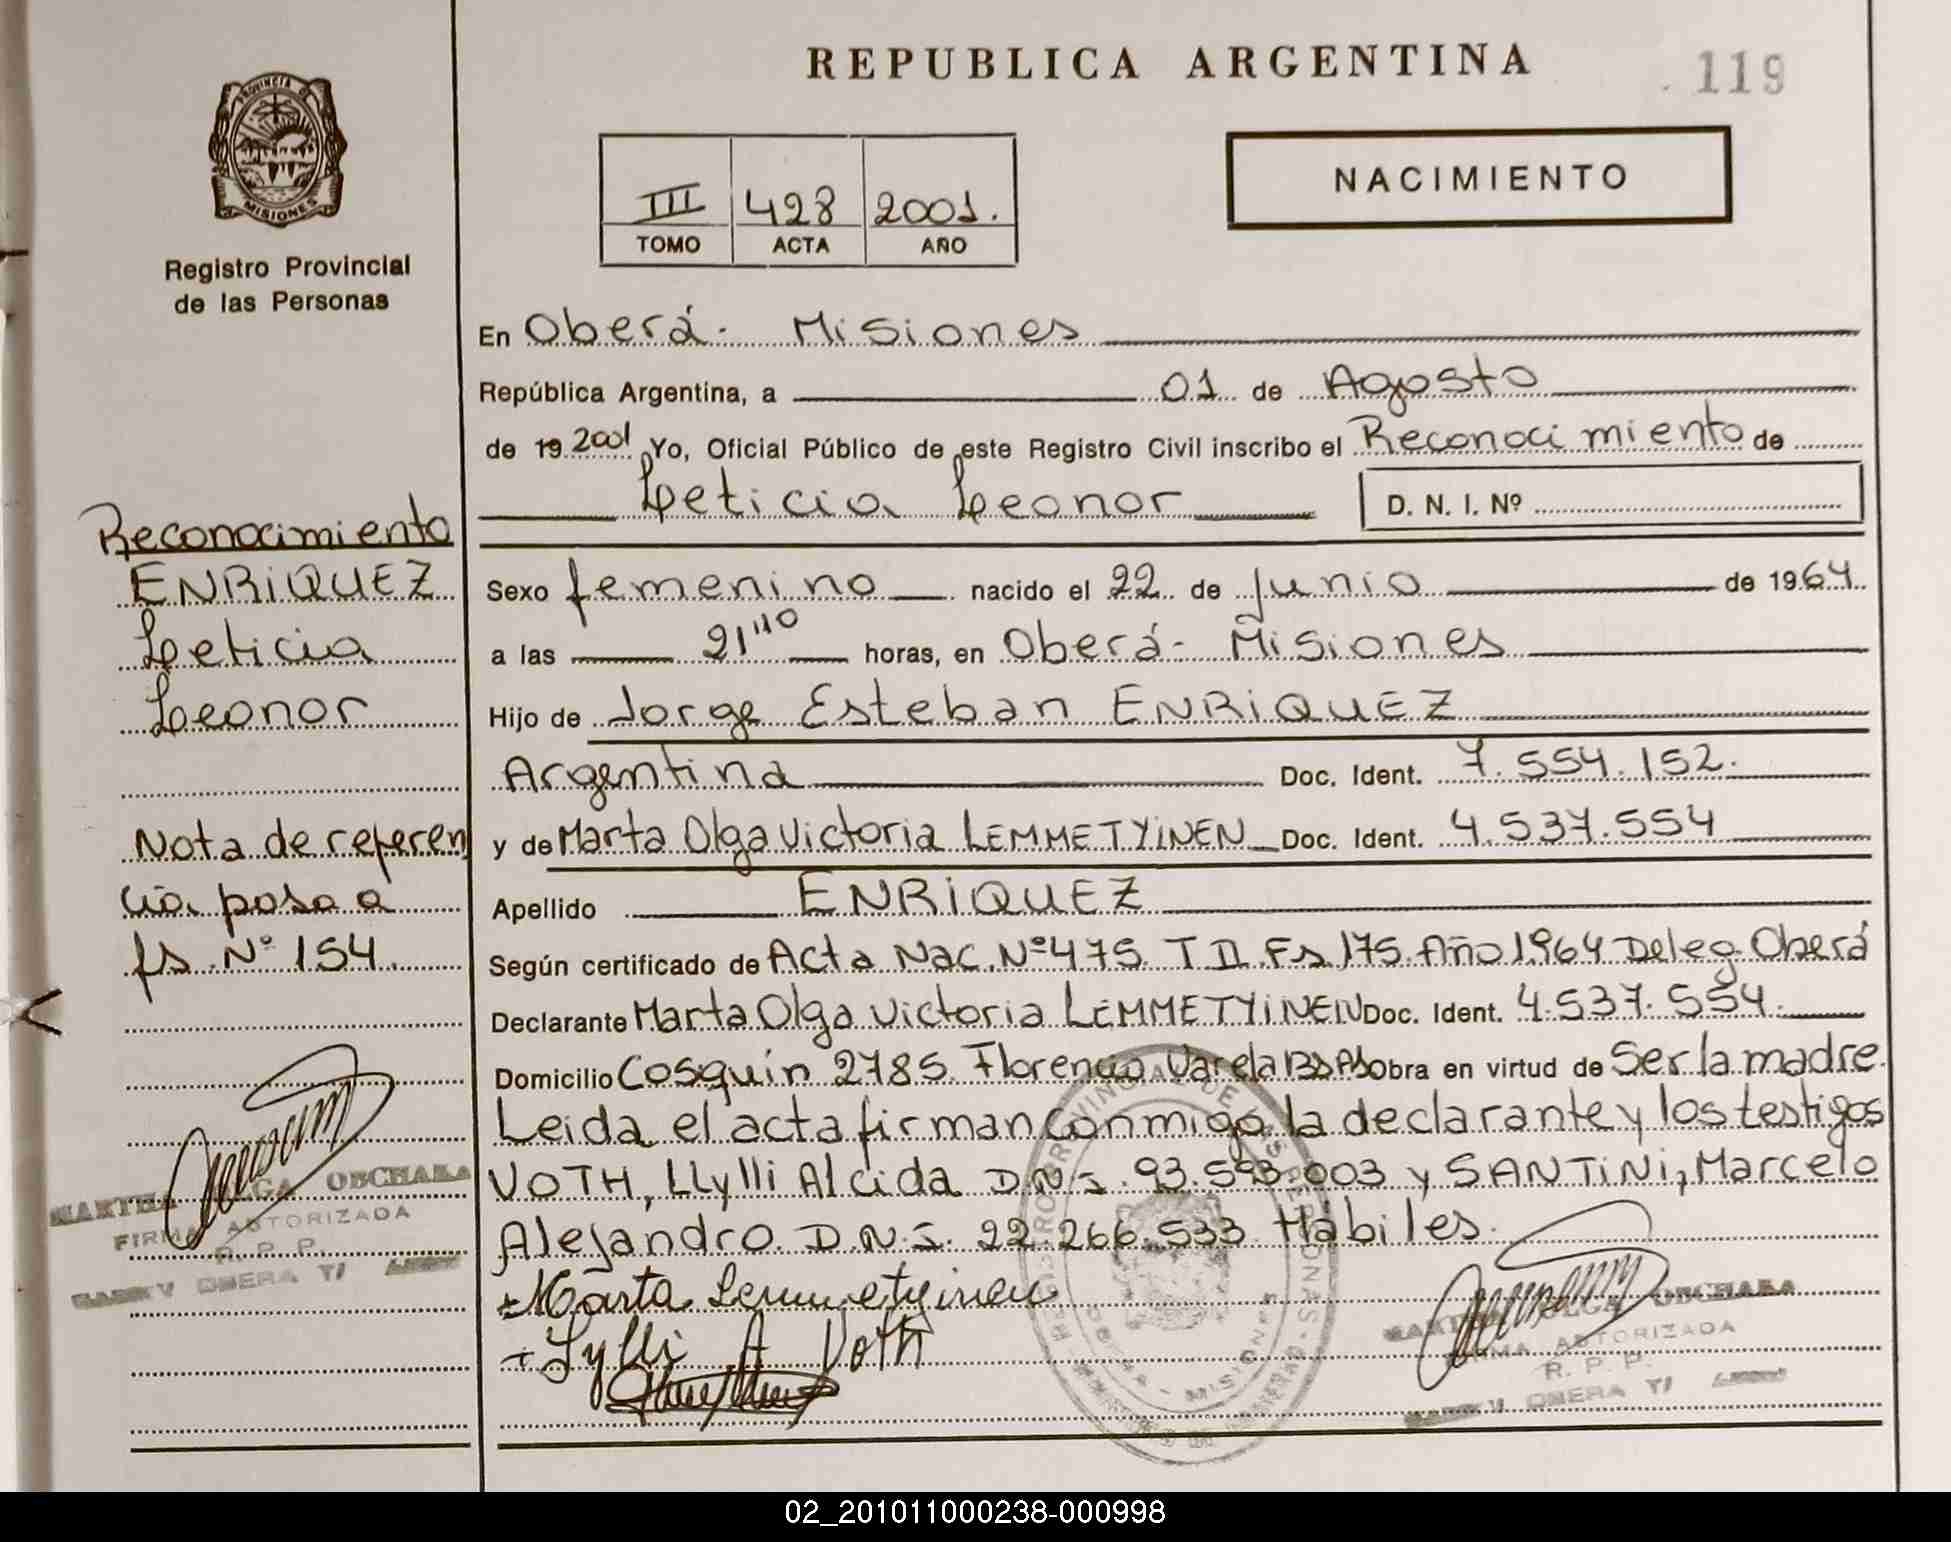 REPUBLICA ARGENTINA
119
PROVINCIA D
MISIONES
Registro Provincial
de las Personas
III 428 2001.
TOMO ACTA AÑO
NACIMIENTO
En Oberá - Misiones
República Argentina, a 01 de Agosto
de 19 2001 Yo, Oficial Público de este Registro Civil inscribo el Reconocimiento de
Leticia Leonor
D. N. I. Nº
Sexo femenino nacido el 22 de Junio de 1964
a las 21"10 horas, en Oberá - Misiones
Hijo de Jorge Esteban ENRIQUEZ
Argentina Doc. Ident. 7.554.152.
y de Marta Olga Victoria LEMMETYINEN Doc. Ident. 4.537.554
Apellido ENRIQUEZ
Según certificado de Acta Nac. Nº 475 T II Fs 175 Año 1964 Deleg Oberá
Declarante Marta Olga Victoria LEMMETYINEN Doc. Ident. 4.537.554.
Domicilio Cosquín 2785 Florencio Varela Bs As obra en virtud de Ser la madre
Leida el acta firman conmigo la declarante y los testigos
VOTH, LLylli Alcida D.N.I. 93.593.003 y SANTINI, Marcelo
Alejandro D.N.I. 22.266.533 Hábiles.
Marta Lemmetyinen
Lylli A Voth
Reconocimiento
ENRIQUEZ
Leticia
Leonor
Nota de referen
cia pasa a
fs Nº 154.
OBCHARA
FIRMA AUTORIZADA
R. P. P.
OBCHARA
FIRMA AUTORIZADA
R. P. P.
02_201011000238-000998